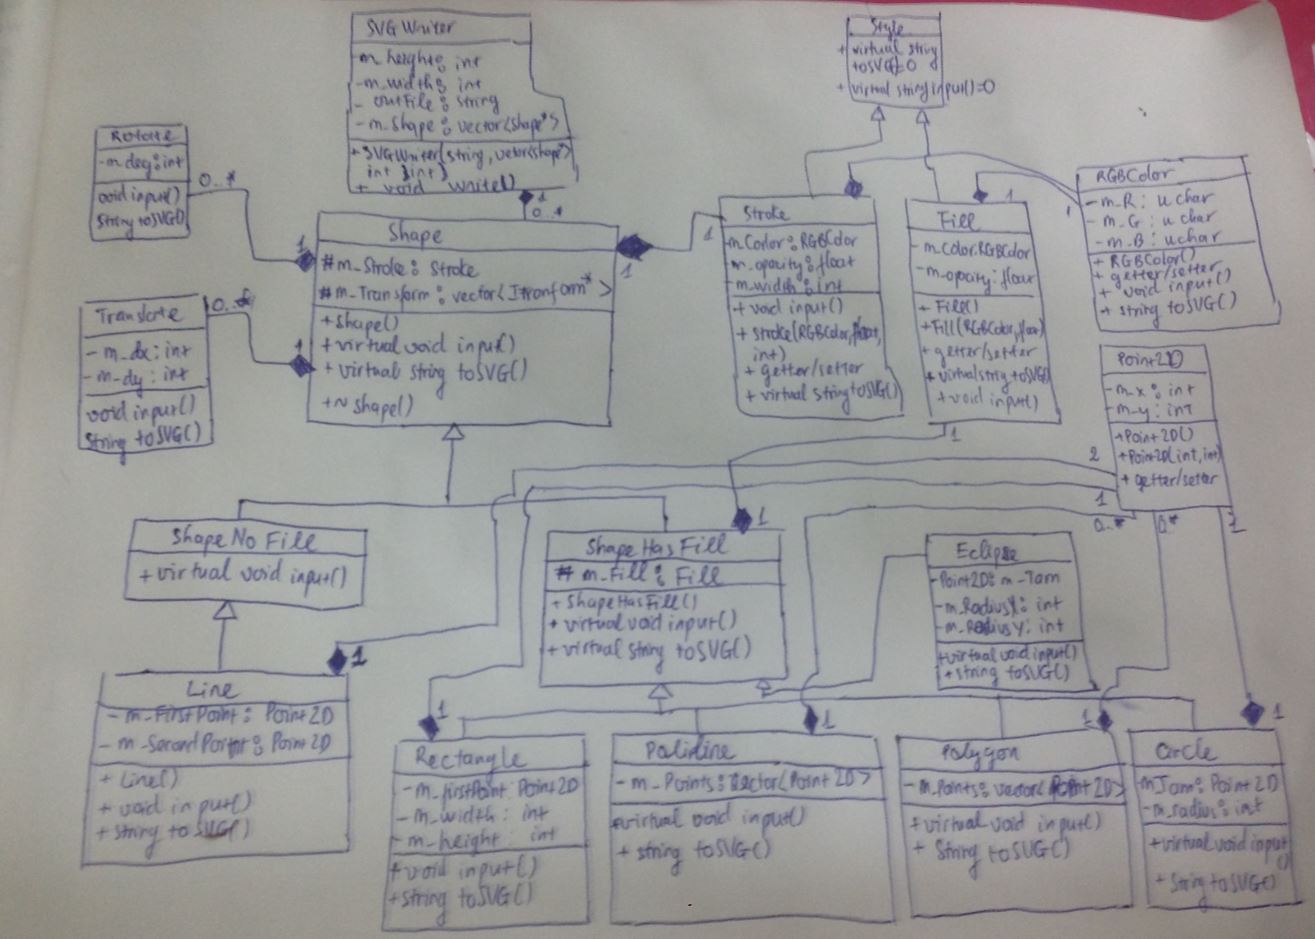 SVG Writer
- m_height: int
- m_width: int
- outFile: string
- m_Shape: vector<shape*>
+ SVGWriter(string, vetor<shape*>
int, int)
+ void write()
Style
+ virtual string
toSVG()=0
+ virtual string input()=0
Rotate
- m_deg: int
void input()
String toSVG()
0..*
1
0..*
Translate
- m_dx: int
- m_dy: int
void input()
String toSVG()
0..*
1
Shape
# m_Stroke: Stroke
# m_Transform: vector<Itranform*>
+ shape()
+ virtual void input()
+ virtual string toSVG()
+ ~ shape()
1
1
Stroke
- m_Color: RGBColor
- m_opacity: float
- m_width: int
+ void input()
+ stroke(RGBColor, float,
int)
+ getter/setter
+ virtual string toSVG()
Fill
- m_Color: RGBColor
- m_opacity: float
+ Fill()
+ Fill(RGBColor, float)
+ getter/setter
+ virtual string toSVG()
+ void input()
1
1
1
RGBColor
- m_R: uchar
- m_G: uchar
- m_B: uchar
+ RGBColor()
+ getter/setter
+ void input()
+ string toSVG()
Point2D
- m_x: int
- m_y: int
+ Point2D()
+ Point2D(int, int)
+ getter/setter
2
1
0..*
0*
1
ShapeNoFill
+ virtual void input()
ShapeHasFill
# m_Fill: Fill
+ ShapeHasFill()
+ virtual void input()
+ virtual string toSVG()
1
Eclipse
- Point2D: m_Tam
- m_RadiusX: int
- m_RadiusY: int
+ virtual void input()
+ string toSVG()
1
Line
- m_FirstPoint: Point2D
- m_SecondPoint: Point2D
+ Line()
+ void input()
+ string toSVG()
1
Rectangle
- m_firstPoint: Point2D
- m_width: int
- m_height: int
+ void input()
+ string toSVG()
1
Poliline
- m_Points: vector<Point2D>
+ virtual void input()
+ string toSVG()
1
Polygon
- m_Points: vector<Point2D>
+ virtual void input()
+ String toSVG()
1
Circle
m_Tam: Point2D
- m_radius: int
+ virtual void input
()
+ String toSVG()